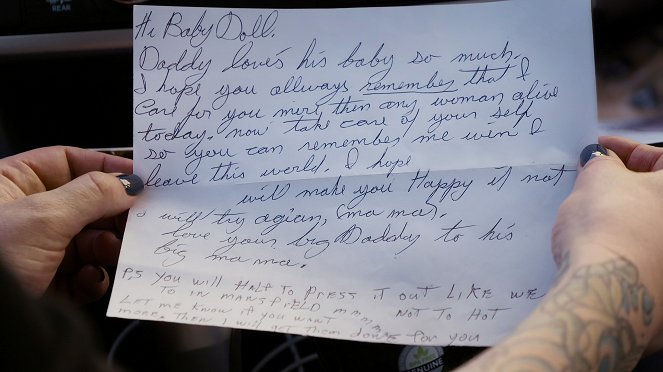 REAR
Hi Baby Doll.
Daddy loves his baby so much.
I hope you allways remember that I
Care for you more then any woman alive
today. now take care of your self
so you can remember me win I
leave this world. I hope
will make you Happy if not
I will try agian, (ma ma).
love your big Daddy to his
big ma ma.
P,S YOU WILL HALF TO PRESS IT OUT LIKE WE
TO IN MANSFIELD NOT TO HOT
LET ME KNOW IF YOU WANT
MORE. THEN I WILL GET THEM DONE FOR YOU
GENUINE